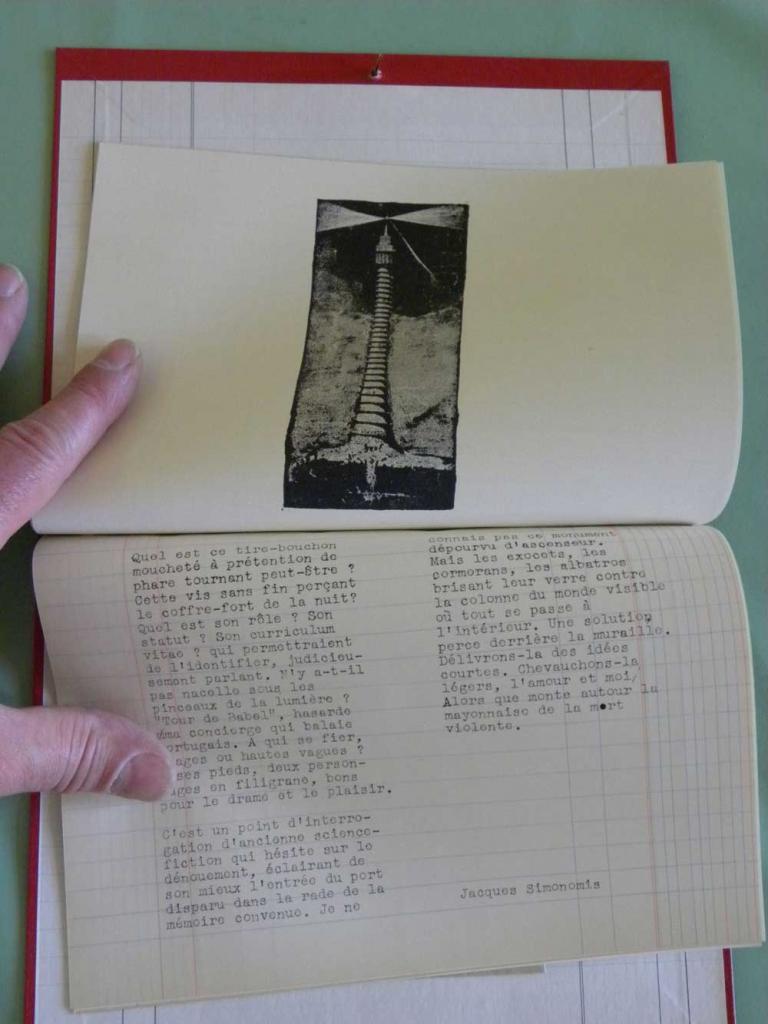 Quel est ce tire-bouchon
moucheté à prétention de
phare tournant peut-être ?
Cette vis sans fin perçant
le coffre-fort de la nuit?
Quel est son rôle ? Son
statut ? Son curriculum
vitae ? qui permettraient
de l'identifier, judicieu-
sement parlant. N'y a-t-il
pas nacelle sous les
pinceaux de la lumière ?
"Tour de Babel", hasarde
ma concierge qui balaie
portugais. A qui se fier,
ages ou hautes vagues ?
ses pieds, deux person-
ages en filigrane, bons
pour le drame et le plaisir.
C'est un point d'interro-
gation d'ancienne science-
fiction qui hésite sur le
dénouement, éclairant de
son mieux l'entrée du port
disparu dans la rade de la
mémoire convenue. Je ne
connais pas ce monument
dépourvu d'ascenseur.
Mais les exocets, les
cormorans, les albatros
brisant leur verre contre
la colonne du monde visible
où tout se passe à
l'intérieur. Une solution
perce derrière la muraille.
Délivrons-la des idées
courtes. Chevauchons-la
légers, l'amour et moi/
Alors que monte autour la
mayonnaise de la mort
violente.
Jacques Simonomis